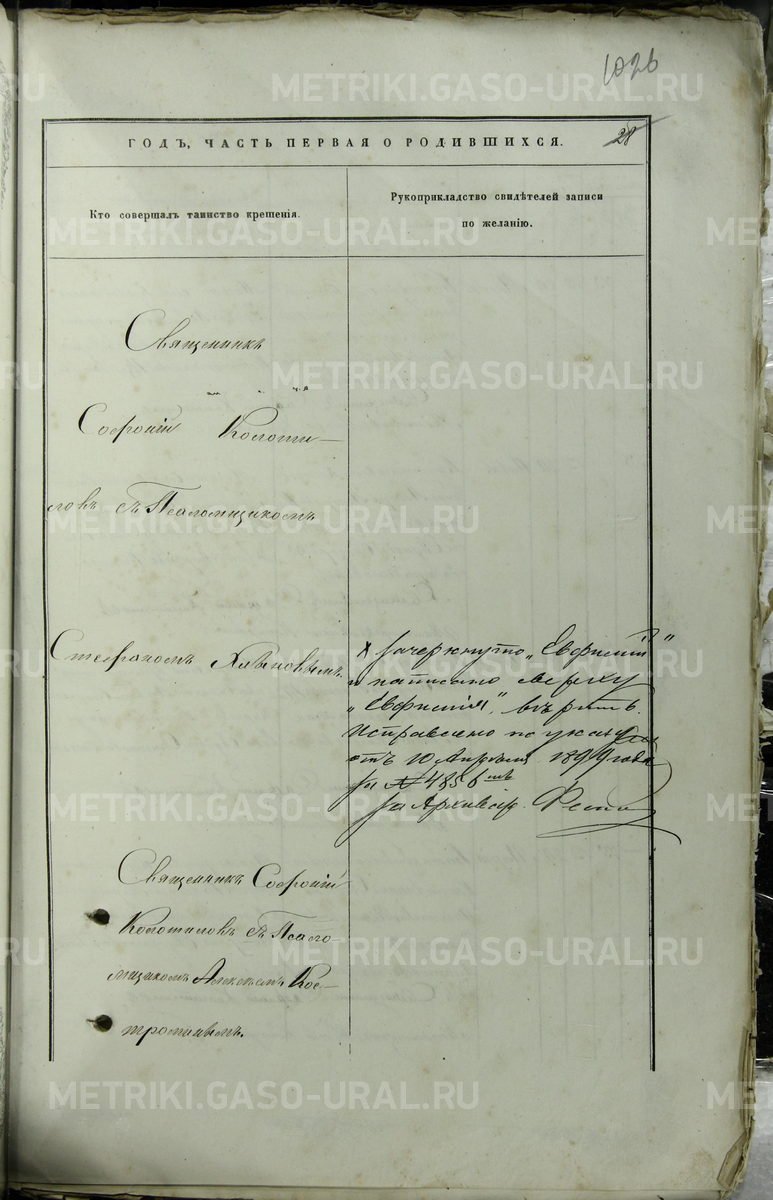 102б
ГОДЪ, ЧАСТЬ ПЕРВАЯ О РОДИВШИХСЯ.
28
Кто совершалъ таинство крещенія.
Рукоприкладство свидѣтелей записи
по желанію.
Священникъ
Софроній Колоти-
ловъ съ Псаломщикомъ
Стефаномъ Хлыновымъ.
Х Зачеркнуто „Евфимій"
и написано сверху
„Евфимія", вѣрить.
Исправлено по указу
отъ 10 Апрѣля 1899 года
за № 4856
За Архиваріуса
Священникъ Софроній
Колотиловъ съ Псало-
мщикомъ Алексѣемъ Кос-
троминымъ.
METRIKI.GASO-URAL.RU